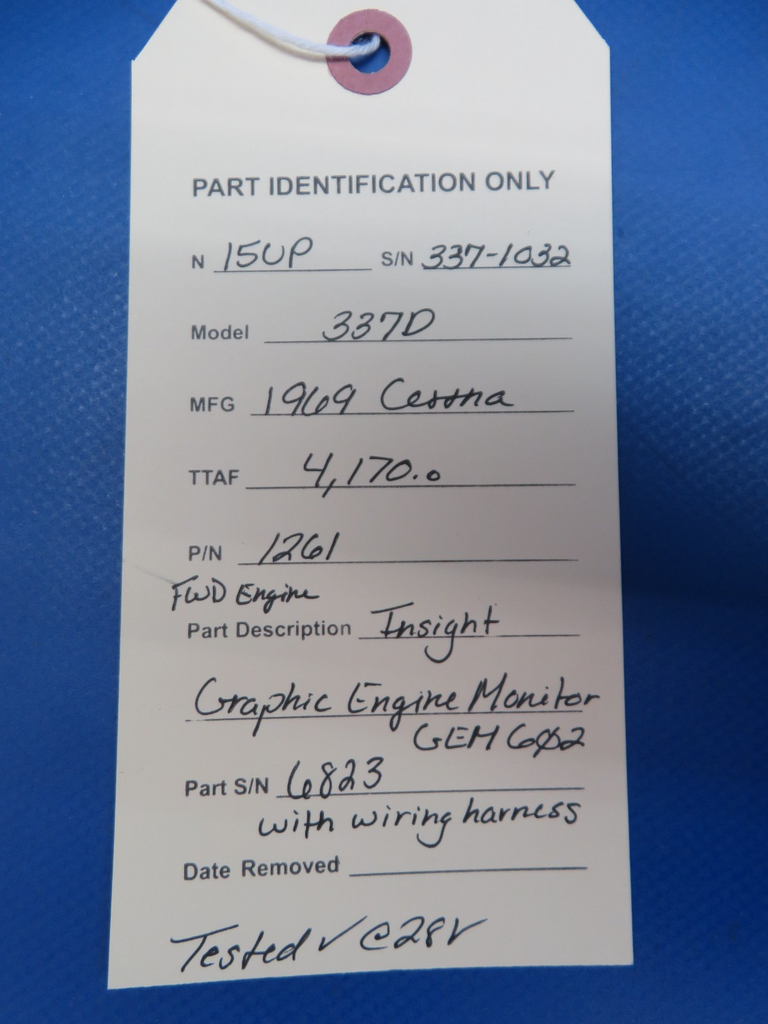 PART IDENTIFICATION ONLY
N 15UP S/N 337-1032
Model 337D
MFG 1969 Cessna
TTAF 4,170.0
P/N 1261
FWD Engine
Part Description Insight
Graphic Engine Monitor
GEM 602
Part S/N 6823
with wiring harness
Date Removed
Tested ✓ @ 28V